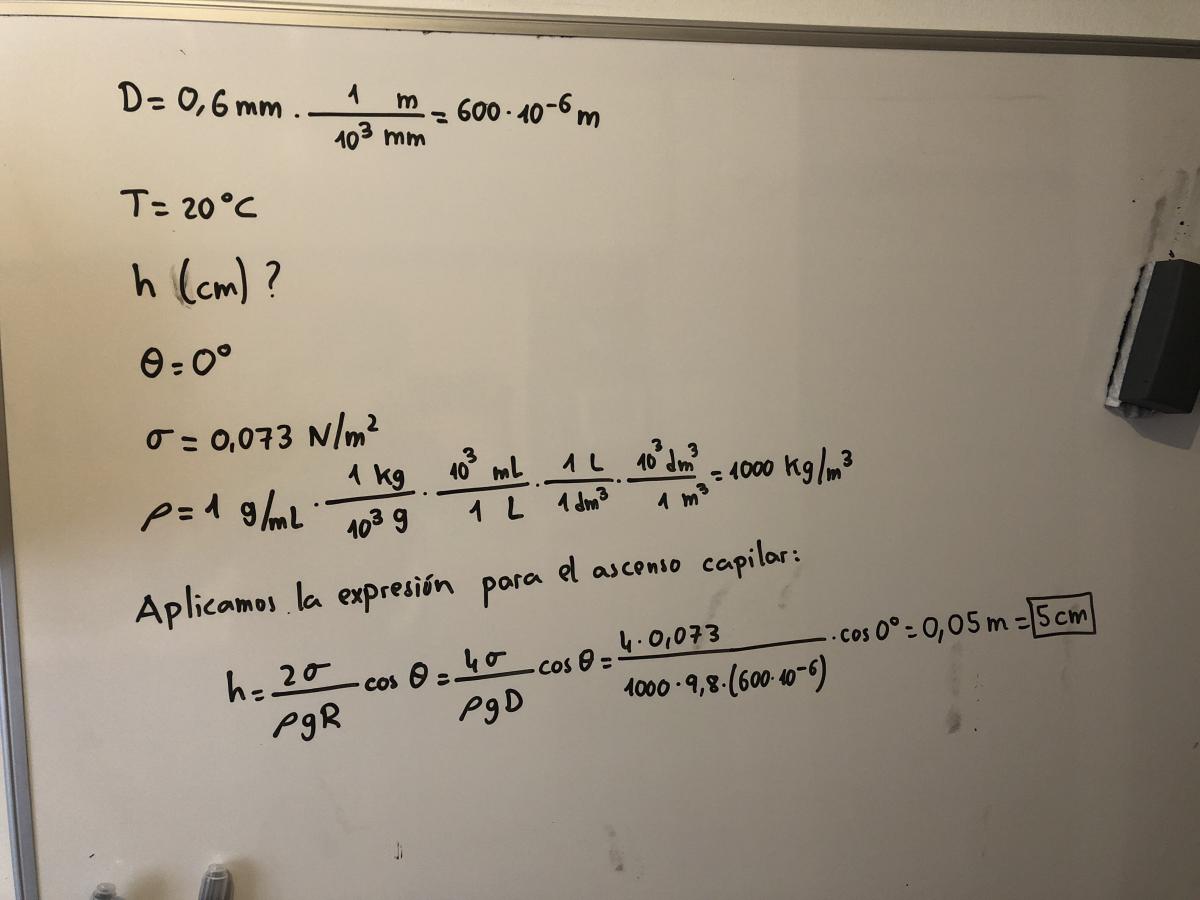 D = 0,6 mm · 1 m / 10³ mm = 600 · 10⁻⁶ m
T = 20°C
h (cm) ?
θ = 0°
σ = 0,073 N/m²
ρ = 1 g/mL · 1 kg / 10³ g · 10³ mL / 1 L · 1 L / 1 dm³ · 10³ dm³ / 1 m³ = 1000 kg/m³
Aplicamos la expresión para el ascenso capilar:
h = 2σ / ρgR cos θ = 4σ / ρgD cos θ = 4 · 0,073 / 1000 · 9,8 · (600 · 10⁻⁶) · cos 0° = 0,05 m = 5 cm